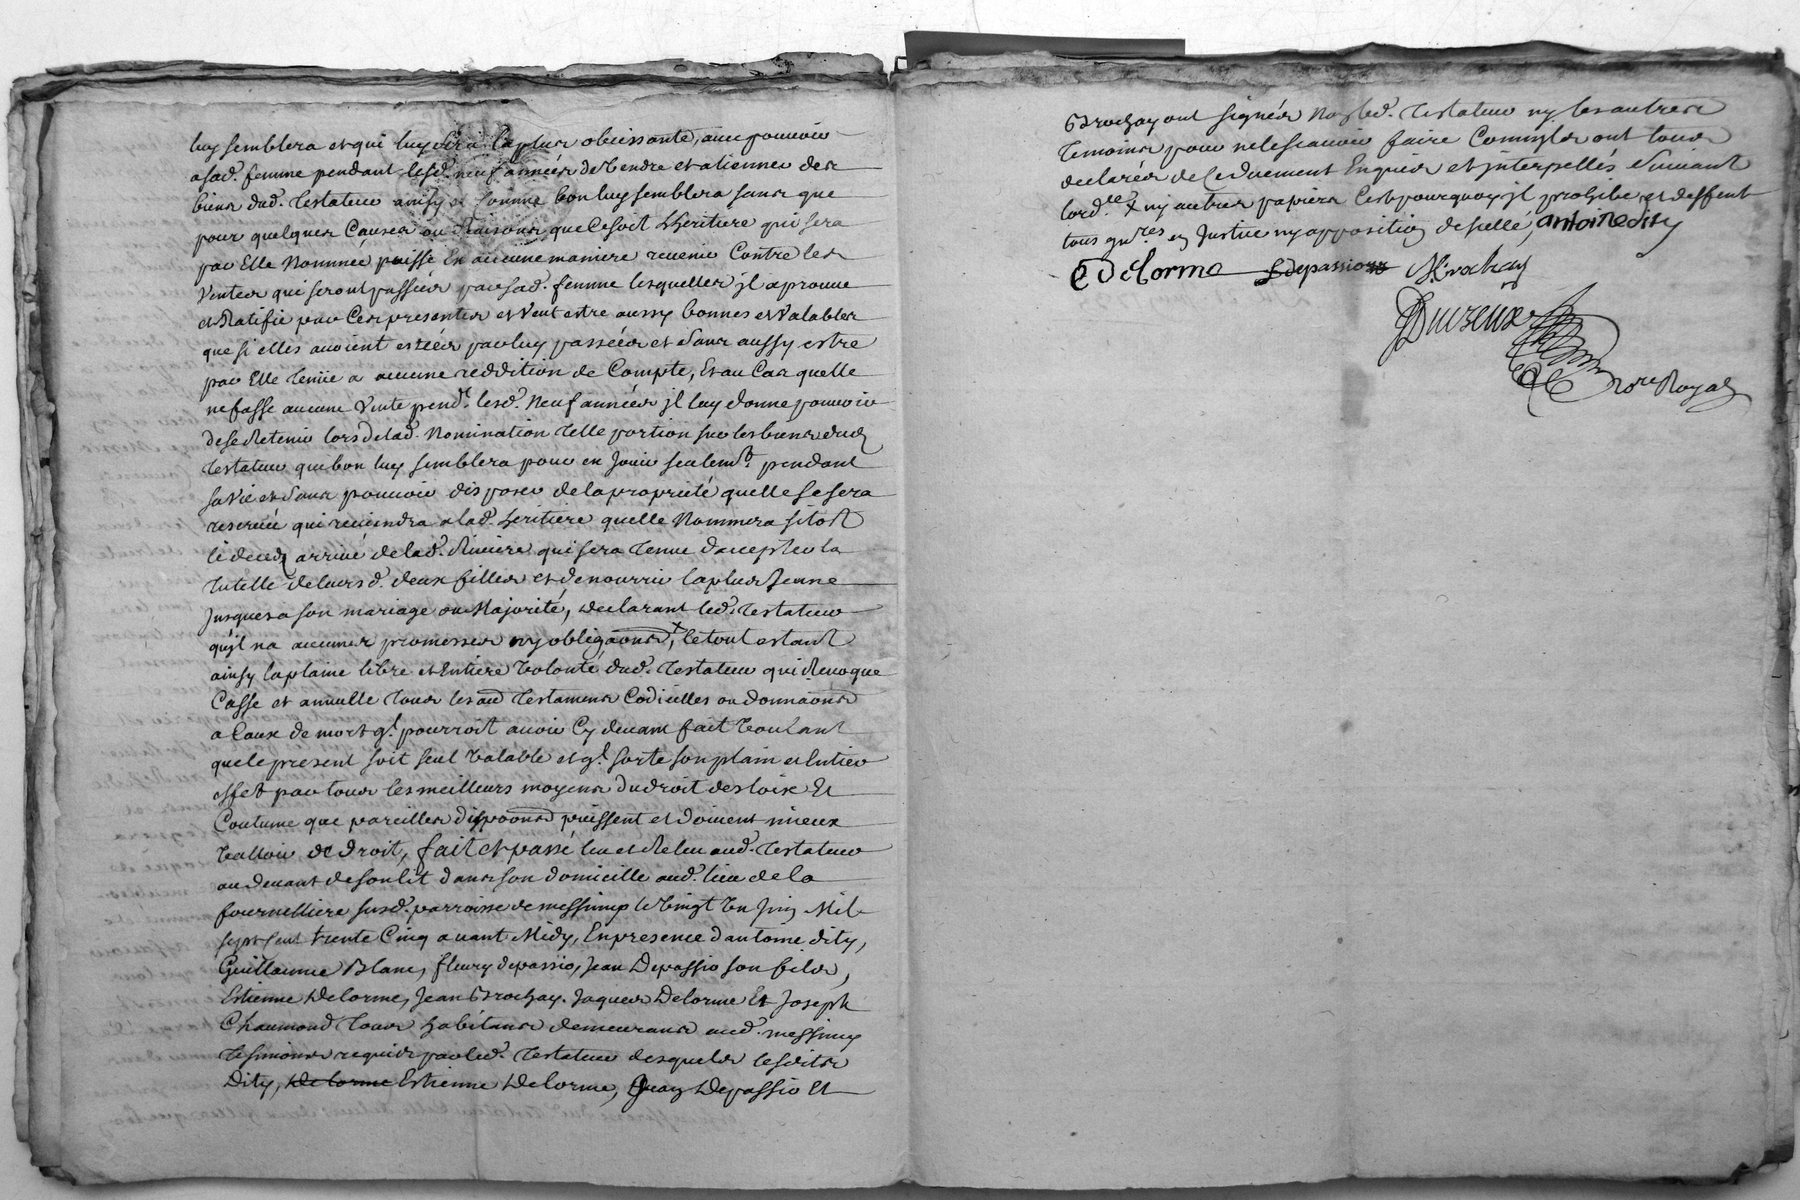 luy semblera et qui luy sera la plus obeissante, avec pouvoir
a sad. femme pendant lesd. neuf années de Vendre et aliener des
biens dud. Testateur ainsy et comme bon luy semblera sans que
pour quelques Causes ou Raisons que Ce soit L'heritiere qui sera
par Elle Nommée puisse En aucune maniere revenir Contre les
Ventes qui seront passées par sad. femme lesquelles jl aprouve
et Ratifie par Ces presentes et Veut estre aussy bonnes et Valables
que si elles avoient estéés par luy passéés et Sans aussy estre
par Elle Tenüe a aucune reddition de Compte, Et au Cas quelle
ne fasse aucune Vente pend.t lesd. Neuf années jl luy donne pouvoir
de se Retenir lors de lad. Nomination Telle portion sur les biens dud
Testateur que bon luy semblera pour en Jouir seulem.t pendant
sa Vie et Sans pouvoir disposer de la proprieté quelle se sera
reservéé qui reviendra a lad. heritiere quelle Nommera sitost
le decedz arrivé de lad. Riviere qui sera Tenue d'accepter la
Tutelle de leurs d. deux filles et de nourrir la plus Jeune
Jusques a son mariage ou Majorité, declarant led. Testateur
qu'jl na aucunes promesses ny obligãons +, le tout estant
ainsy la plaine libre et Entiere Volonté dud. Testateur qui Revoque
Casse et annulle Tous les aud Testaments Codicilles ou donnaõns
a Cause de mort q.l pourroit avoir Cy devant fait Voulant
que le present soit seul Valable et q.l sorte son plain et Entier
effet par tous les meilleurs moyens du droit des loix Et
Coutume que pareilles disp̃oõns puissent et doivent mieux
Valloir de droit, fait et passé leu et Releu aud. Testateur
au devant de son lit dans son domicille aud. lieu de la
fournilliere susd. parroisse de messimy le Vingt Un Juin Mil
sept Cent trente Cinq avant Midy, En presence d'antoine dity,
Guillaume Blanc, fleury depassio, Jean Depassio son fils,
Estienne Delorme, Jean Brochay, Jaques Delorme Et Joseph
Chaumond Tous habitans demeurans aud. messimy
Tesmoins requis par led. Testateur desquels lesdits
Dity, Delorme Estienne Delorme, Jean Depassio Et
Brochay ont signés Non led. Testateur ny les autres
Temoins pour ne le scavoir faire Comme ils ont tous
declarés de Ce duement Enquis et jnterpellés Suivant
lord.ce + ny autres papiers Cest pourquoy jl prohibe et deffent
tous qu.res en Justice ny apposition de scellé, antoine dity
E Delorme J depassio J Brochay
Duvzeux
No.re Royal